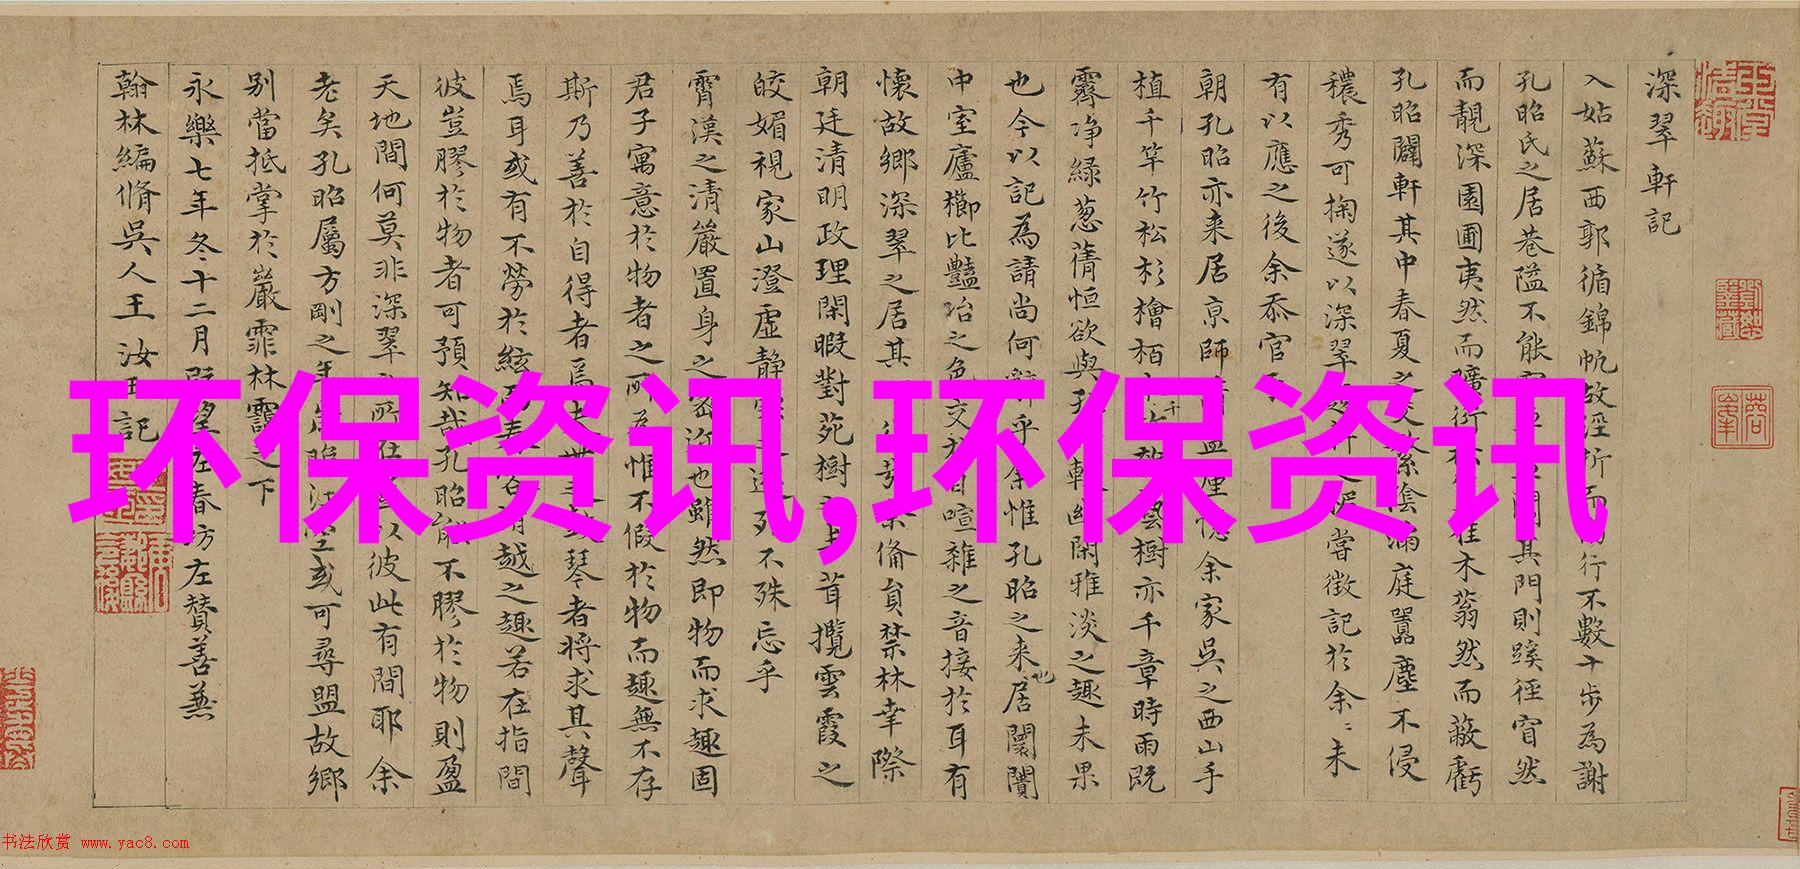 深翠軒記
入姑蘇西郭循錦帆故涇折而行不數十步為謝
孔昭氏之居巷隘不能容其門則蹊徑窅然
而靚深園圃夷然而曠衍木蓊然而蔽虧
孔昭闢軒其中春夏之交繁陰滿庭囂塵不侵
穠秀可掬遂以深翠嘗徵記於余余未
有以應之後余忝官
朝孔昭亦来居京師余家吳之西山手
植千竿竹松杉檜栢樹亦千章時雨既
霽净綠葱蒨恒欲與孔幽閑雅淡之趣未果
也今以記為請尚何辭乎余惟孔昭之来居也闤闠
中室廬櫛比豔冶之色交於目喧雜之音接於耳有
懷故鄉深翠之居其倫負禁林幸際
朝廷清明政理閑暇對苑樹之茸攬雲霞之
皎媚視家山澄虛靜殊忘乎
霄漢之清嚴置身之密沕也雖然即物而求趣固
君子寓意於物者之所為惟不假於物而趣無不存
斯乃善於自得者焉琴者將求其聲
焉耳或有不勞於絃清越之趣若在指間
彼豈膠於物者可預知哉孔昭能不膠於物則盈
天地間何莫非深翠所在以彼此有間耶余
老矣孔昭屬方剛之年或可尋盟故鄉
别當抵掌於巖霏林靄之下
永樂七年冬十二月既望左春坊左贊善兼
翰林編脩吳人王汝玉記
环保资讯,环保资讯
书法欣赏 www.yac8.com